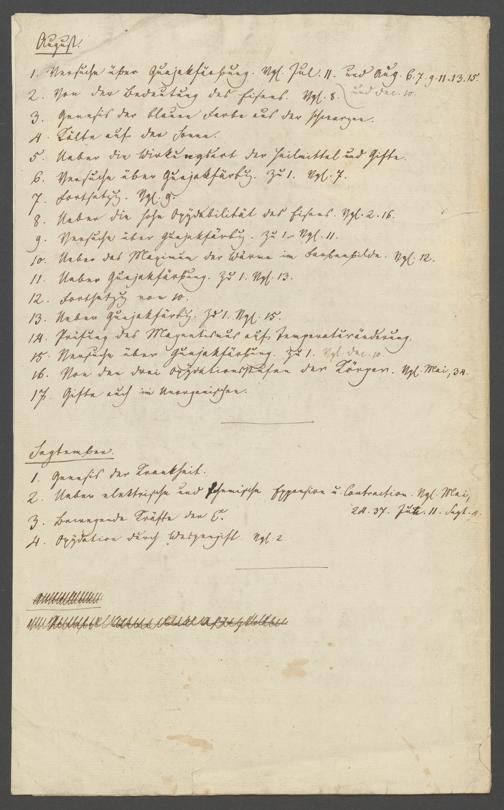 August.
1. Versuche über Guajakfärbung. Vgl. Jul. 11. und Aug. 6. 7. 9. 11. 13. 15.
2. Von der Bedeutung des Eisens. Vgl. 8. und Dec. 10.
3. Genesis der blauen Farbe aus der schwarzen.
4. Kälte auf der Sonne.
5. Ueber die Wirkungsart der Heilmittel und Gifte.
6. Versuche über Guajakfärbg. Zu 1. Vgl. 7.
7. Fortsetzg. Vgl. 9.
8. Ueber die hohe Oxydabilität des Eisens. Vgl. 2. 16.
9. Versuche über Guajakfärbg. Zu 1. Vgl. 11.
10. Ueber das Maximum der Wärme im Farbenbilde. Vgl. 12.
11. Ueber Guajakfärbung. Zu 1. Vgl. 13.
12. Fortsetzg von 10.
13. Ueber Guajakfärbg. Zu 1. Vgl. 15.
14. Prüfung des Magnetismus auf Temperaturänderung.
15. Versuche über Guajakfärbung. Zu 1. Vgl. Dec. 10.
16. Von den drei Oxydationsstufen der Körper. Vgl. Mai, 34.
17. Gifte auch im Anorganischen.
September.
1. Genesis der Krankheit.
2. Ueber elektrische und chemische Expansion u. Contraction. Vgl. Mai,
24. 37. Jul. 11. Sept. 4.
3. Bewegende Kräfte der
4. Oxydation durch Vgl. 2